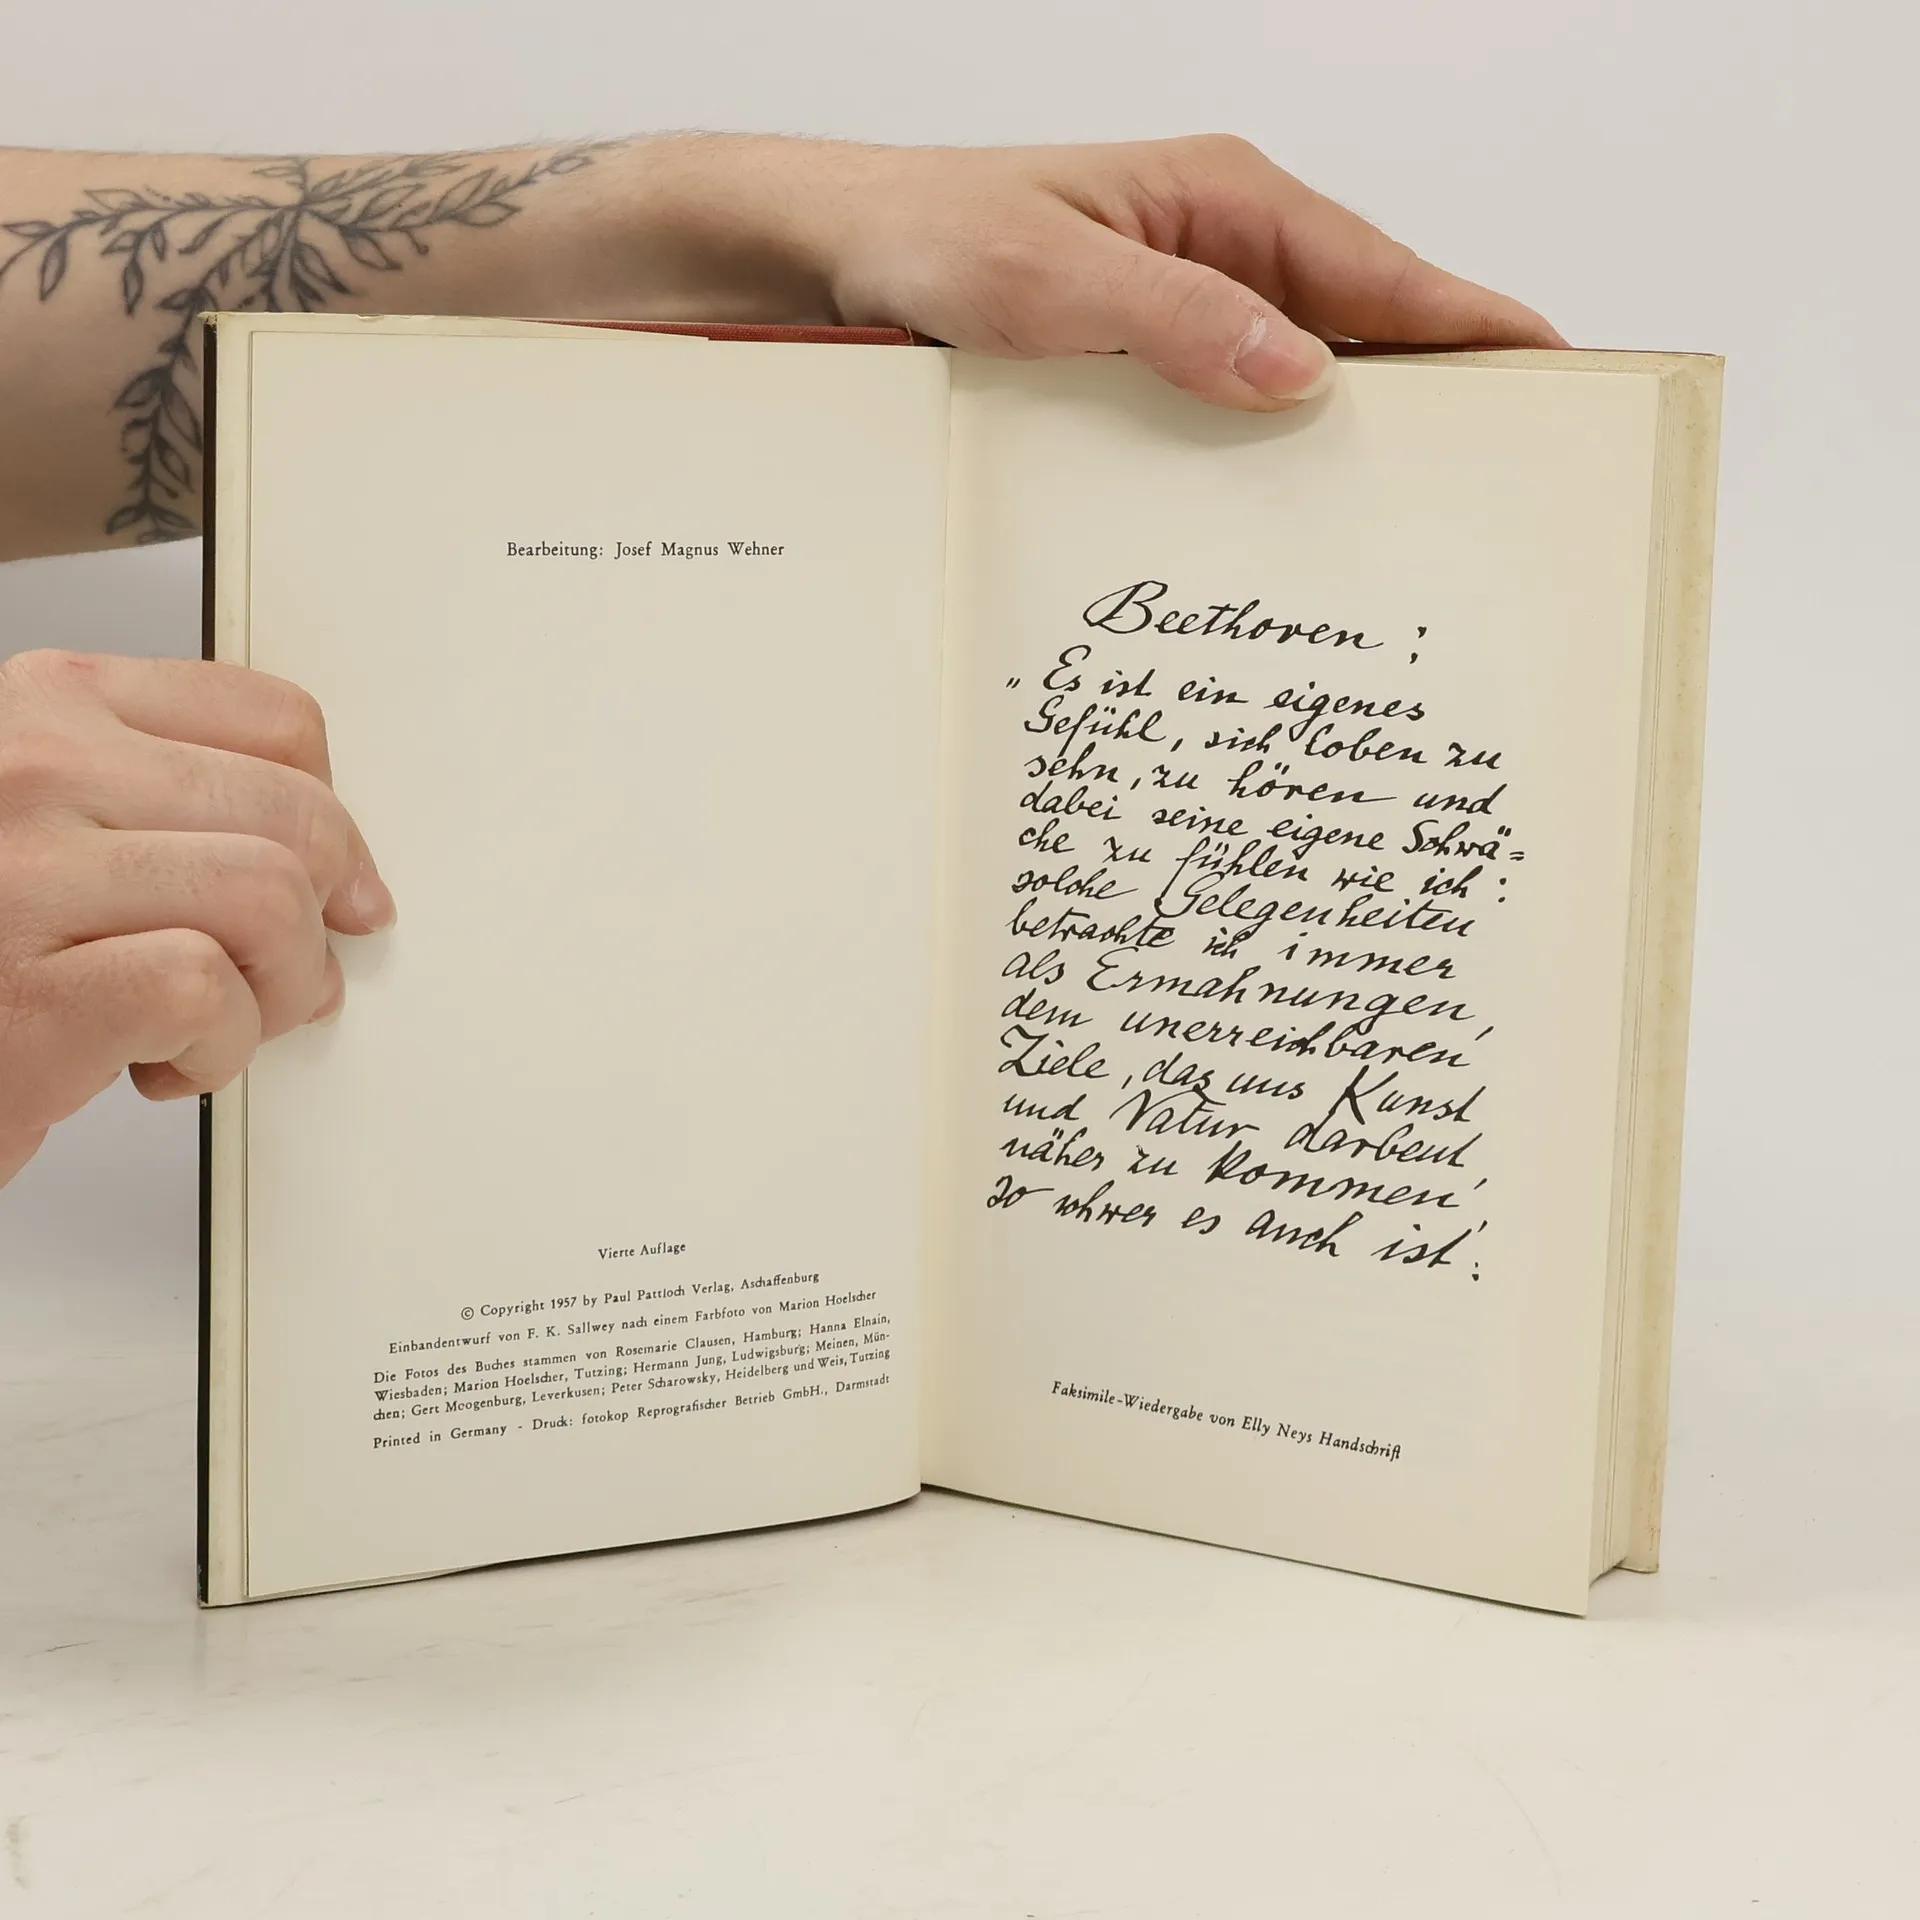 Bearbeitung: Josef Magnus Wehner
Vierte Auflage
© Copyright 1957 by Paul Pattloch Verlag, Aschaffenburg
Einbandentwurf von F. K. Sallwey nach einem Farbfoto von Marion Hoelscher
Die Fotos des Buches stammen von Rosemarie Clausen, Hamburg; Hanna Elnain,
Wiesbaden; Marion Hoelscher, Tutzing; Hermann Jung, Ludwigsburg; Meinen, Mün-
chen; Gert Moogenburg, Leverkusen; Peter Scharowsky, Heidelberg und Weis, Tutzing
Printed in Germany - Druck: fotokop Reprografischer Betrieb GmbH., Darmstadt
Beethoven :
„Es ist ein eigenes
Gefühl, sich loben zu
sehn, zu hören und
dabei seine eigene Schwä=
che zu fühlen wie ich :
solche Gelegenheiten
betrachte ich immer
als Ermahnungen,
dem unerreichbaren
Ziele, das uns Kunst
und Natur darbeut,
näher zu kommen,
so schwer es auch ist.
Faksimile-Wiedergabe von Elly Neys Handschrift